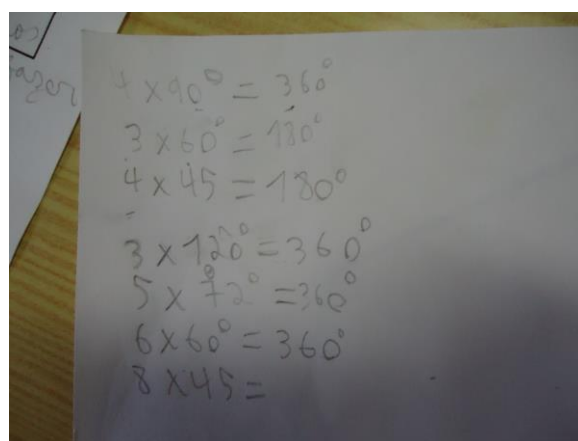 4 × 90° = 360°
3 × 60° = 180°
4 × 45 = 180°
3 × 120° = 360°
5 × 72° = 360°
6 × 60° = 360°
8 × 45 =